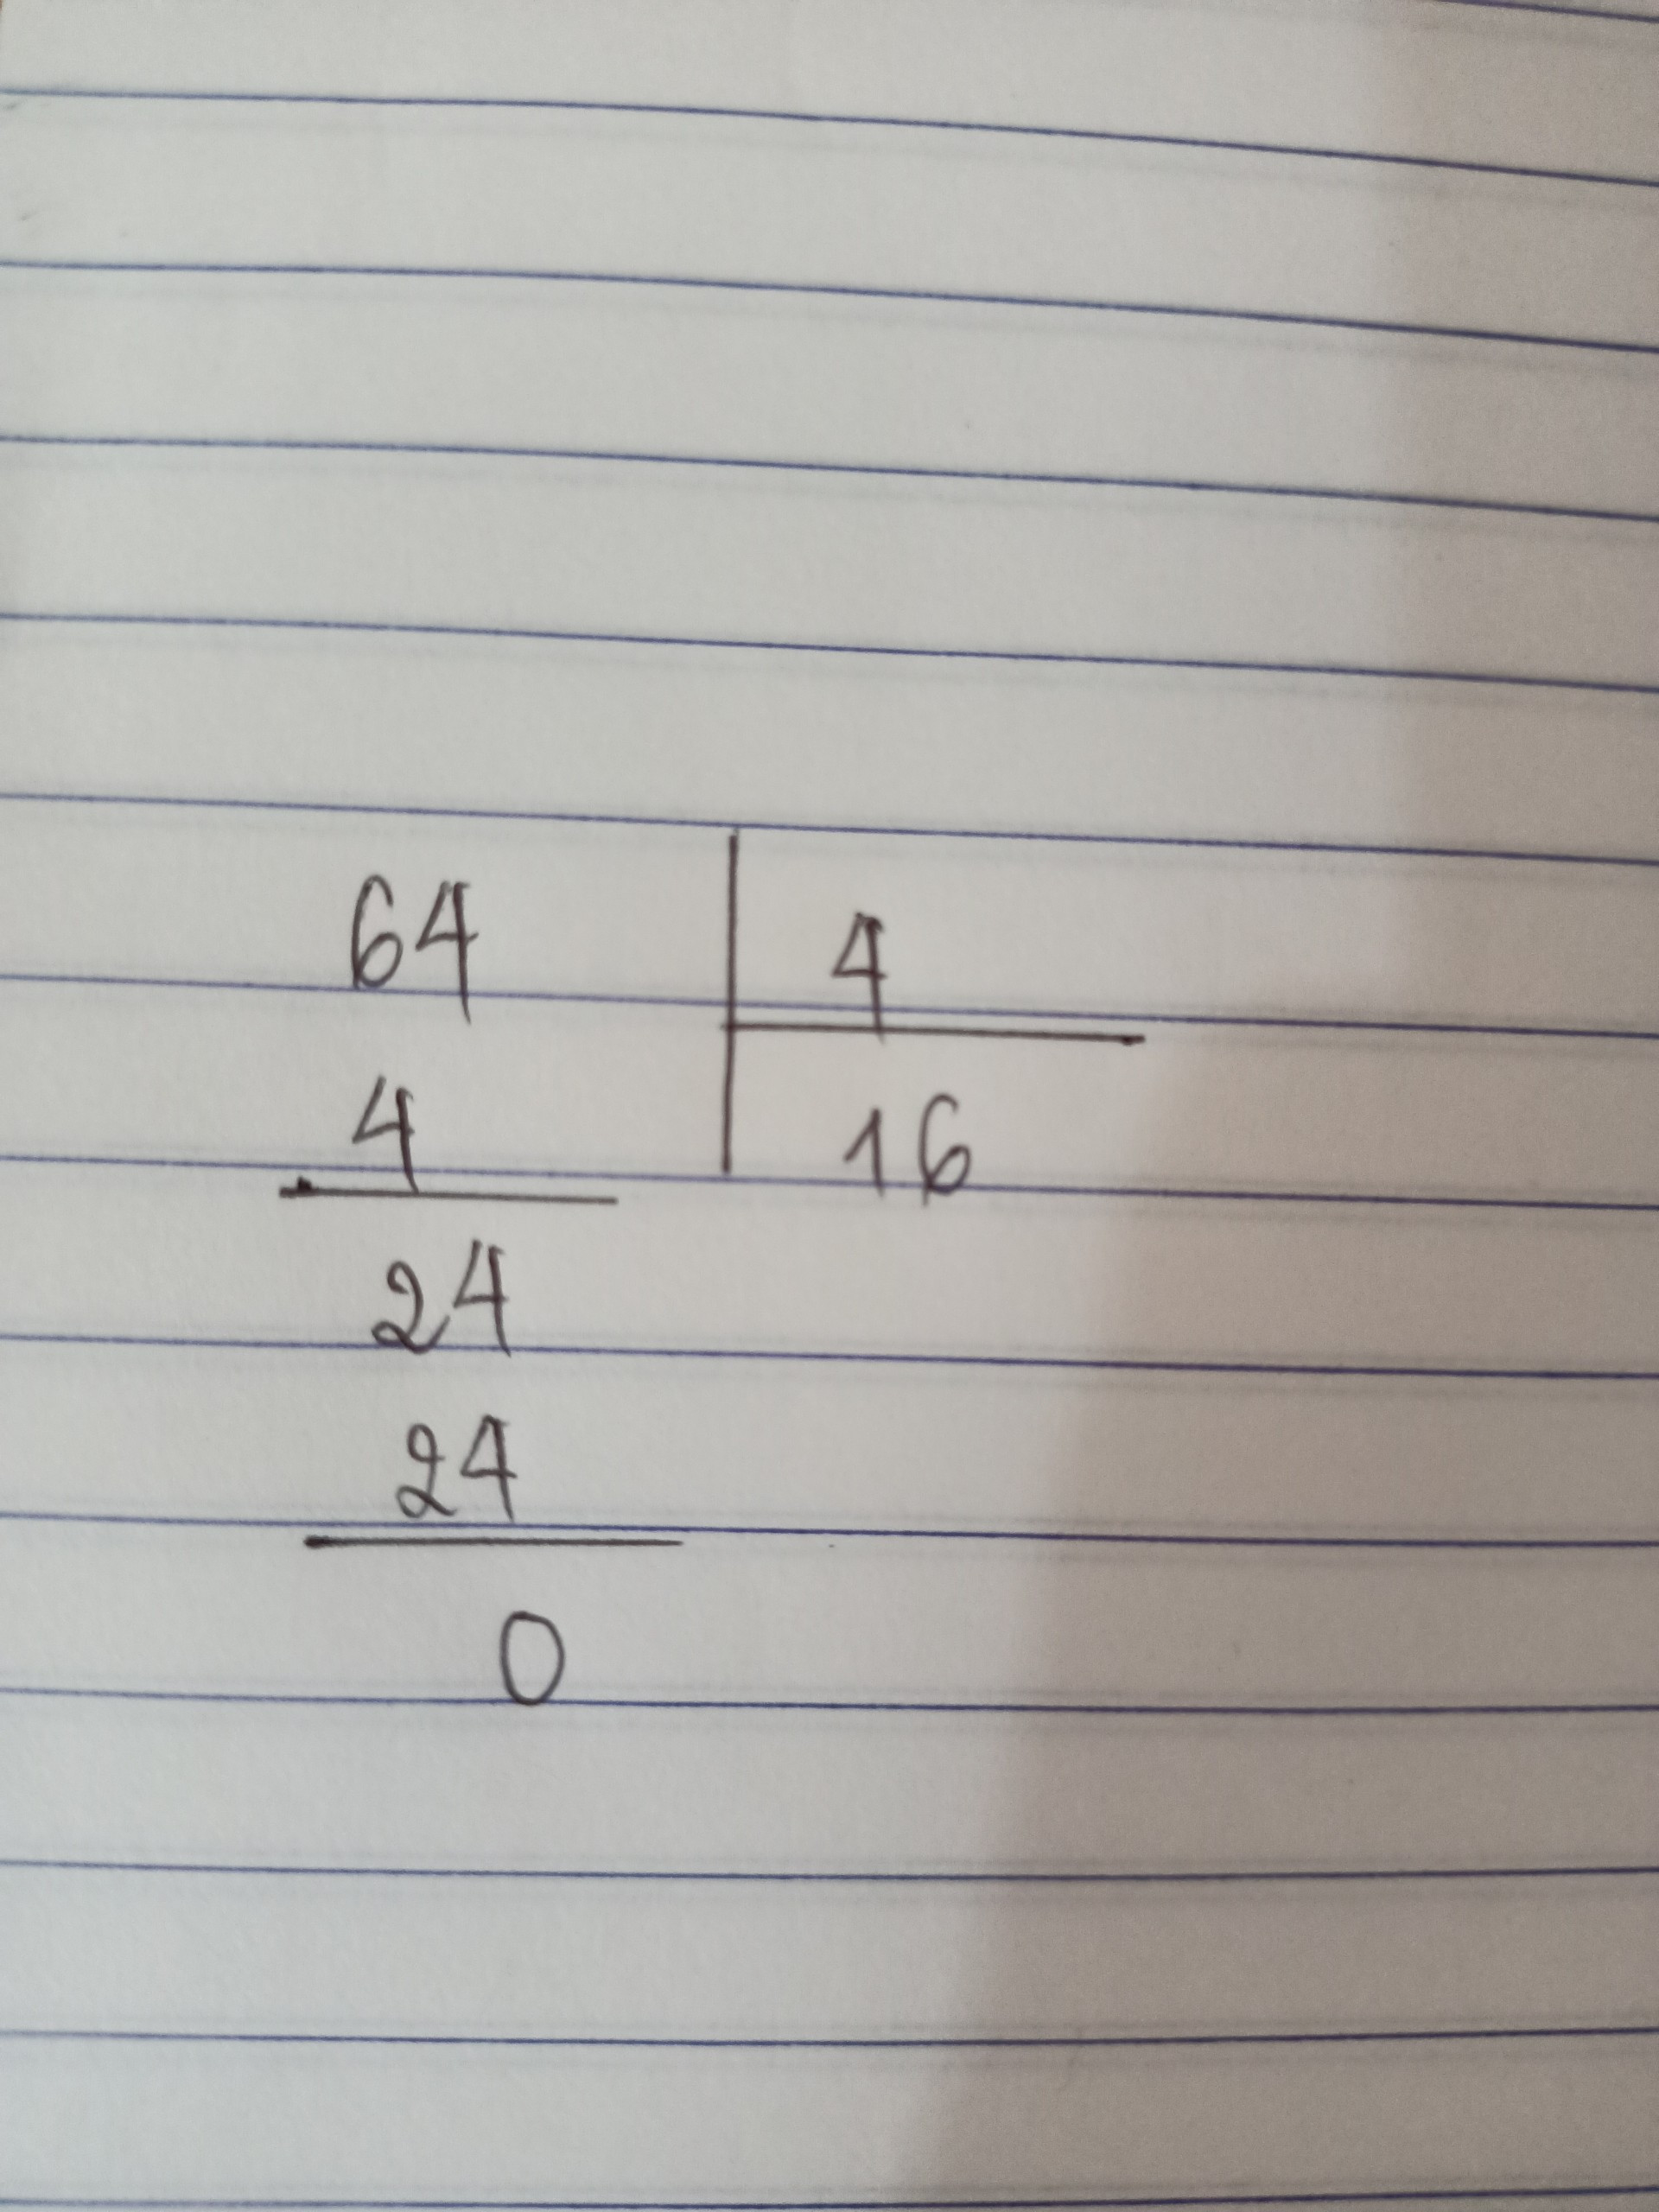 64 4
4 16
24
24
0